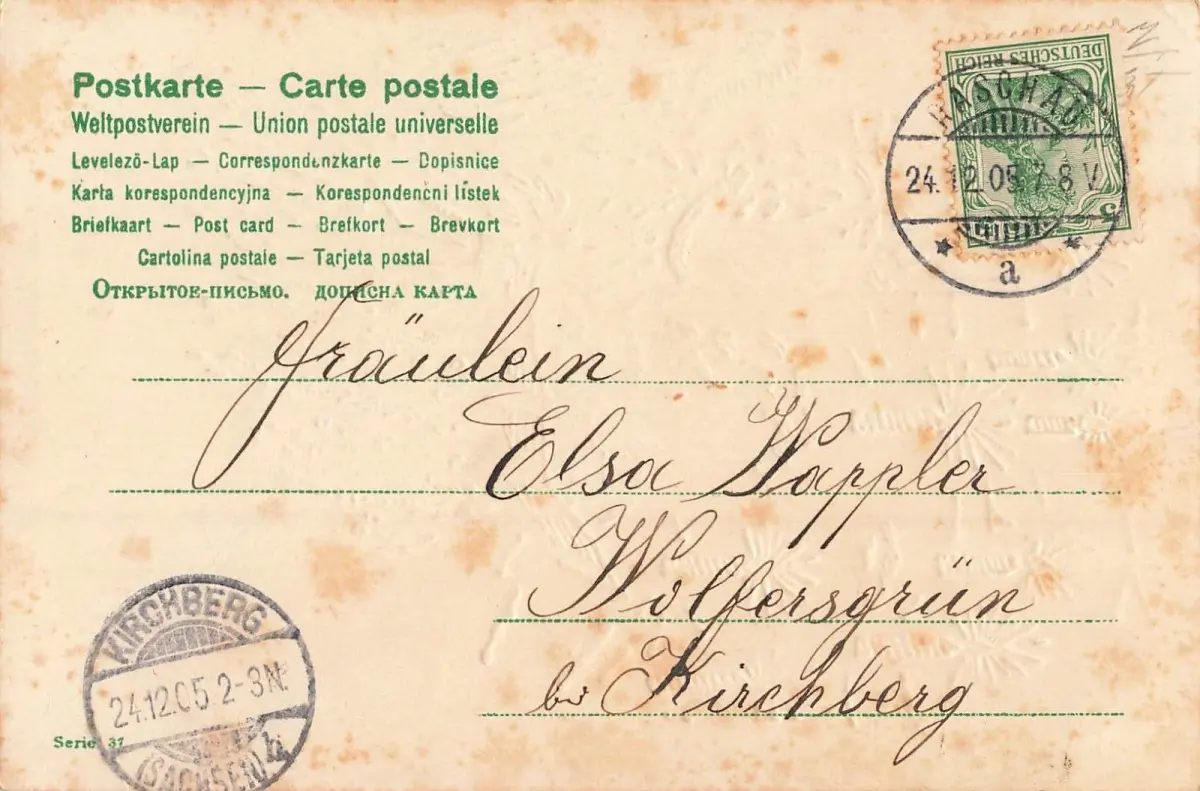 Postkarte — Carte postale
Weltpostverein — Union postale universelle
Levelező-Lap — Correspondenzkarte — Dopisnice
Karta korespondencyjna — Korespondenčni lístek
Briefkaart — Post card — Brefkort — Brevkort
Cartolina postale — Tarjeta postal
Открытое-письмо. дописна карта
DEUTSCHES REICH
5
24.12.05. 7-8 V.
a
Fräulein
Elsa Wappler
Wolfersgrün
bei Kirchberg
KIRCHBERG
24.12.05. 2-3N.
(SACHSEN) b
Serie 37